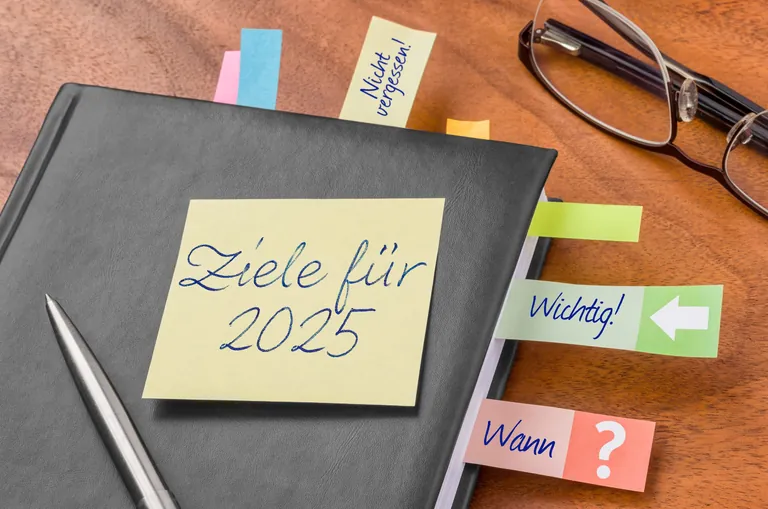 Nicht
vergessen!
Ziele für
2025
Wichtig!
Wann
?